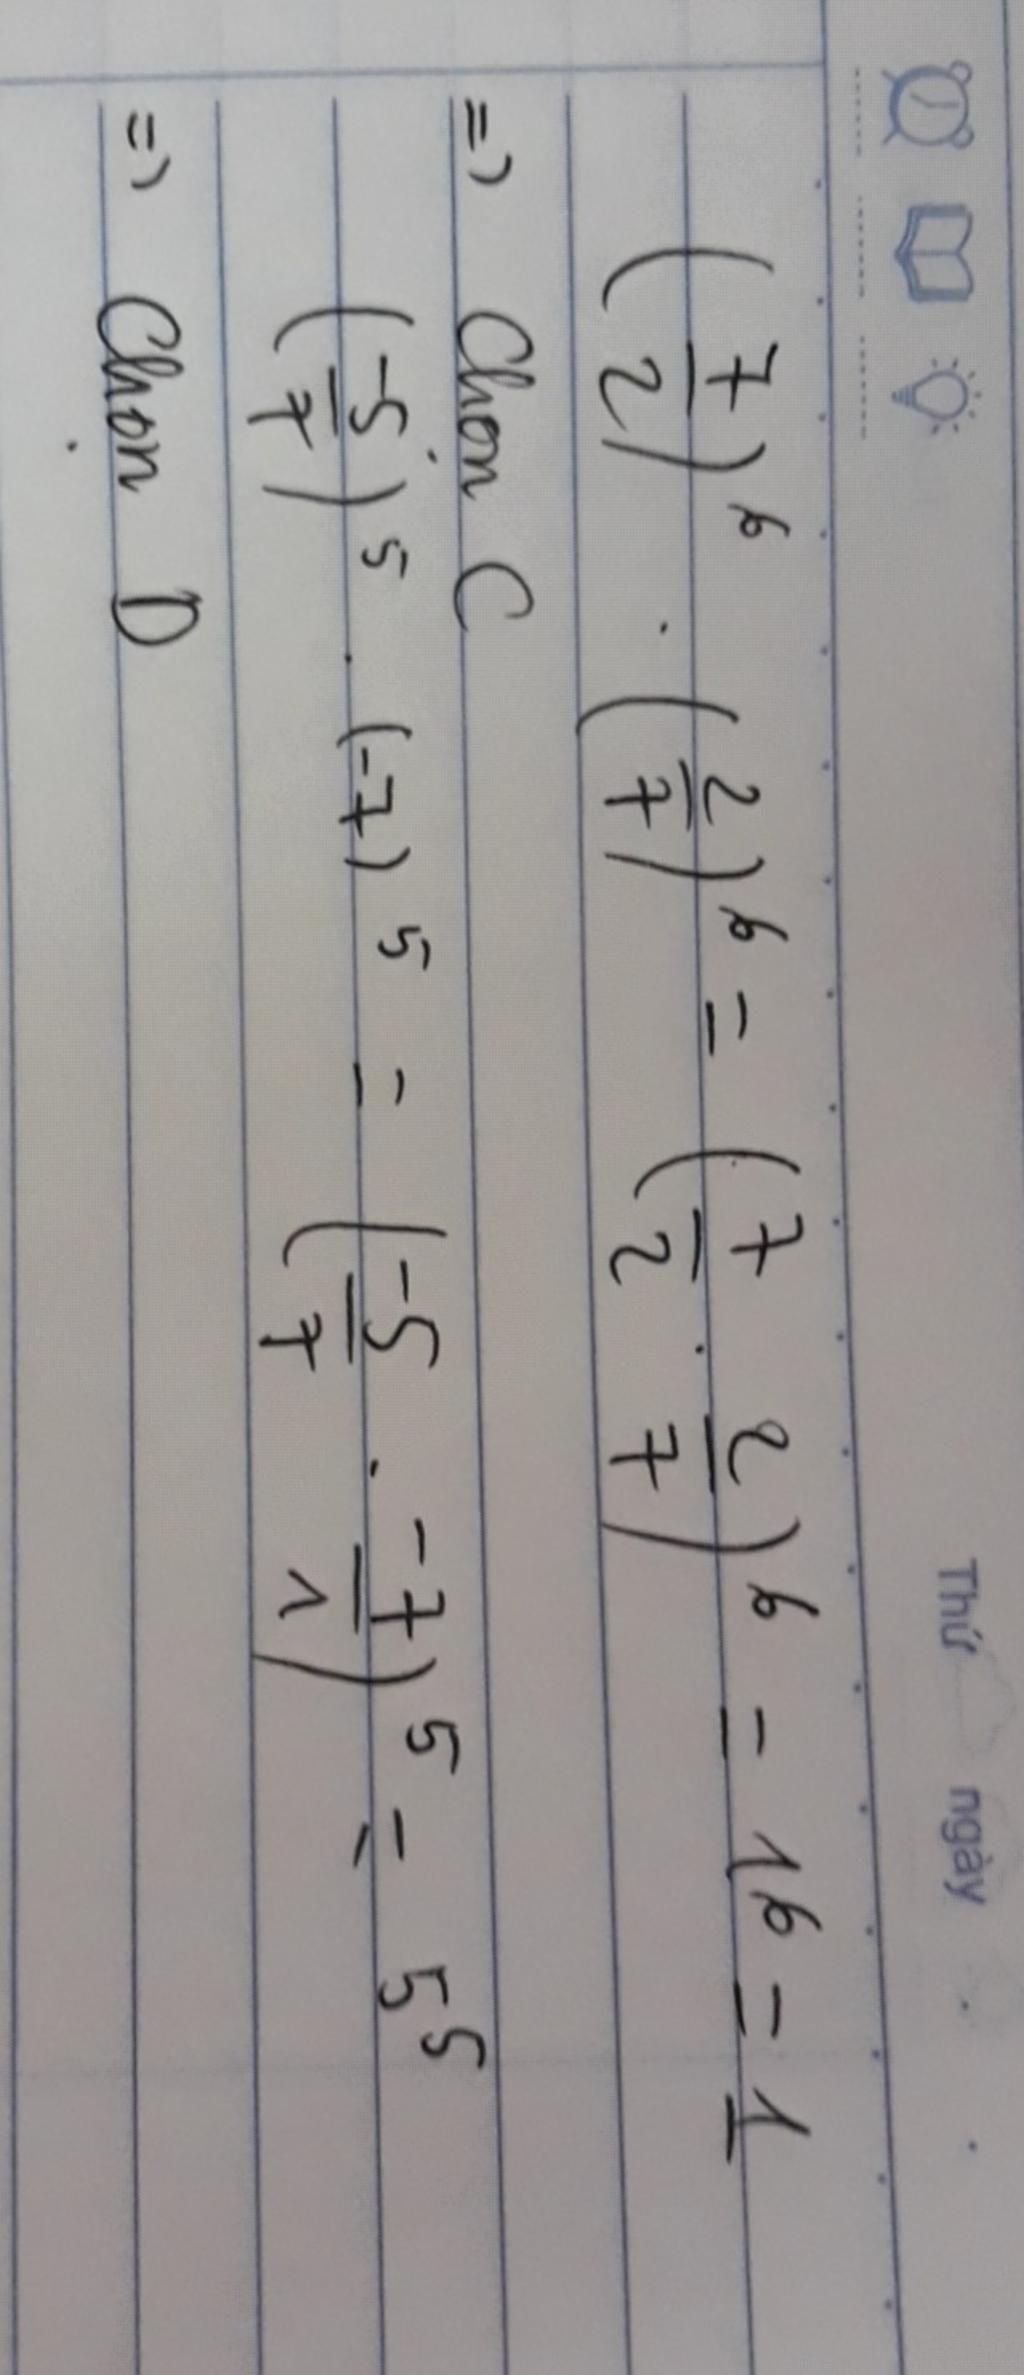 Thứ ngày
(7/2)^6 . (2/7)^6 = (7/2 . 2/7)^6 = 1^6 = 1
=> Chọn C
(-5/7)^5 . (-7)^5 = (-5/7 . -7/1)^5 = 5^5
=> Chọn D